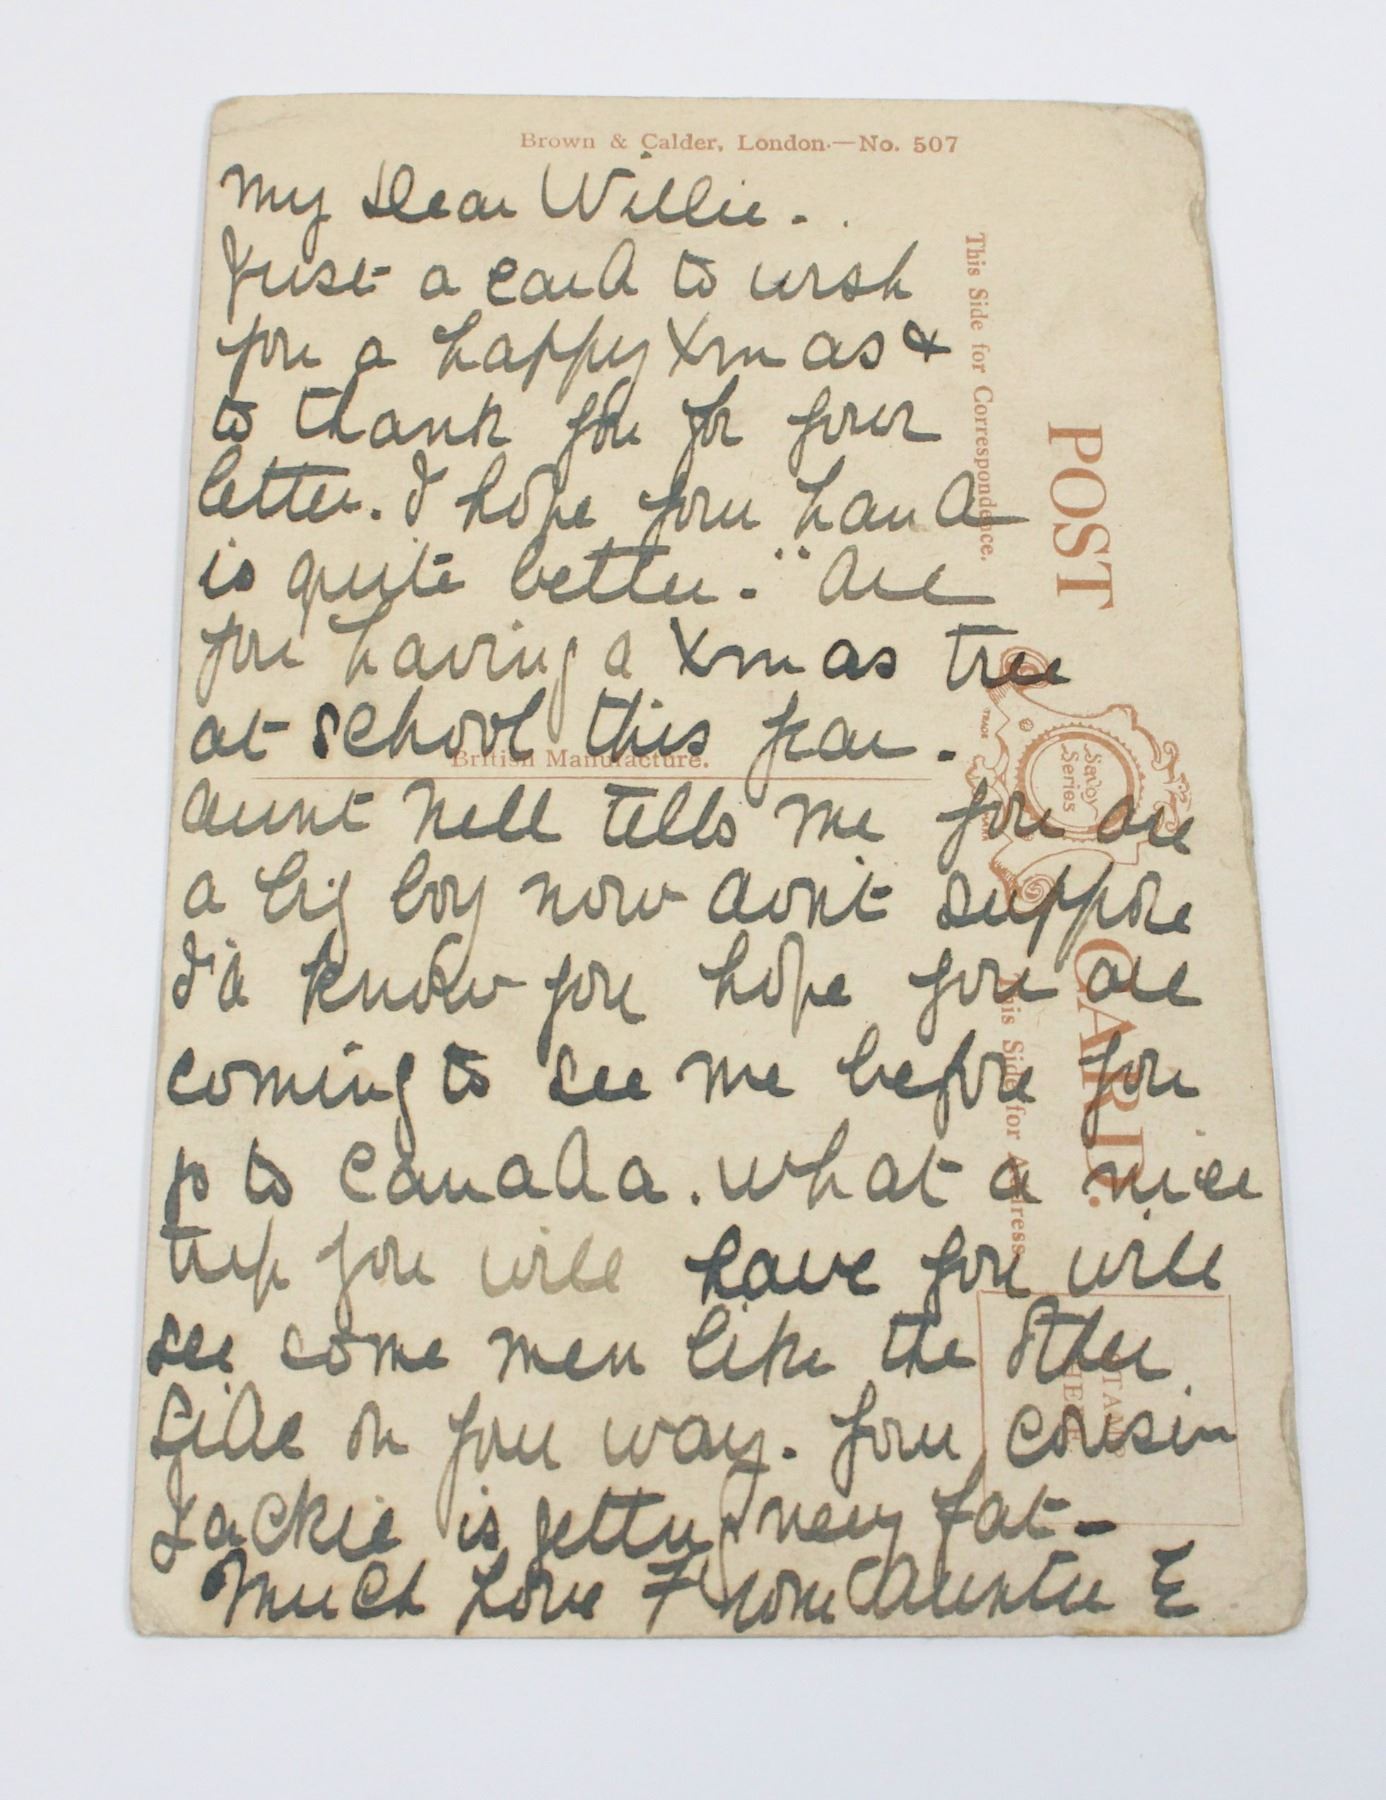 Brown & Calder, London.—No. 507
My Dear Willie.
Just a card to wish
you a happy Xmas &
to thank you for your
letter. I hope your hand
is quite better. Are
you having a Xmas tree
at school this year.
British Manufacture.
Aunt Nell tells me you are
a big boy now dont suppose
I'd know you hope you are
coming to see me before you
go to Canada. What a nice
trip you will have you will
see some men like the other
side on your way. Your cousin
Jackie is getting very fat -
Much Love From Auntie E
This Side for Correspondence.
POST CARD.
TRADE MARK
Savoy
Series
This Side for Address
STAMP
HERE